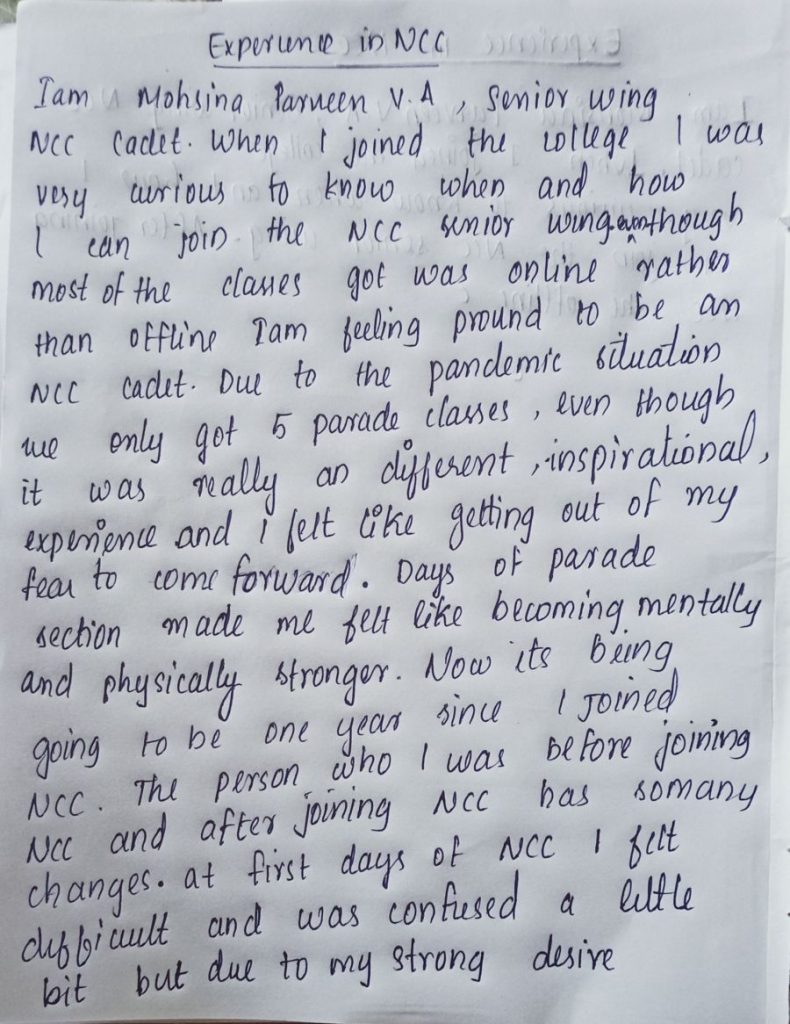 Experience in NCC
Iam Mohsina Parveen V.A, Senior wing
NCC Cadet. When I joined the college I was
very curious to know when and how
I can join the NCC senior wing.eventhough
most of the classes got was online rather
than offline Iam feeling pround to be an
NCC cadet. Due to the pandemic situation
we only got 5 parade classes, even though
it was really an different, inspirational,
experience and I felt like getting out of my
fear to come forward. Days of parade
section made me felt like becoming mentally
and physically stronger. Now its being
going to be one year since I joined
NCC. The person who I was before joining
NCC and after joining NCC has somany
changes. at first days of NCC I felt
difficult and was confused a little
bit but due to my strong desire